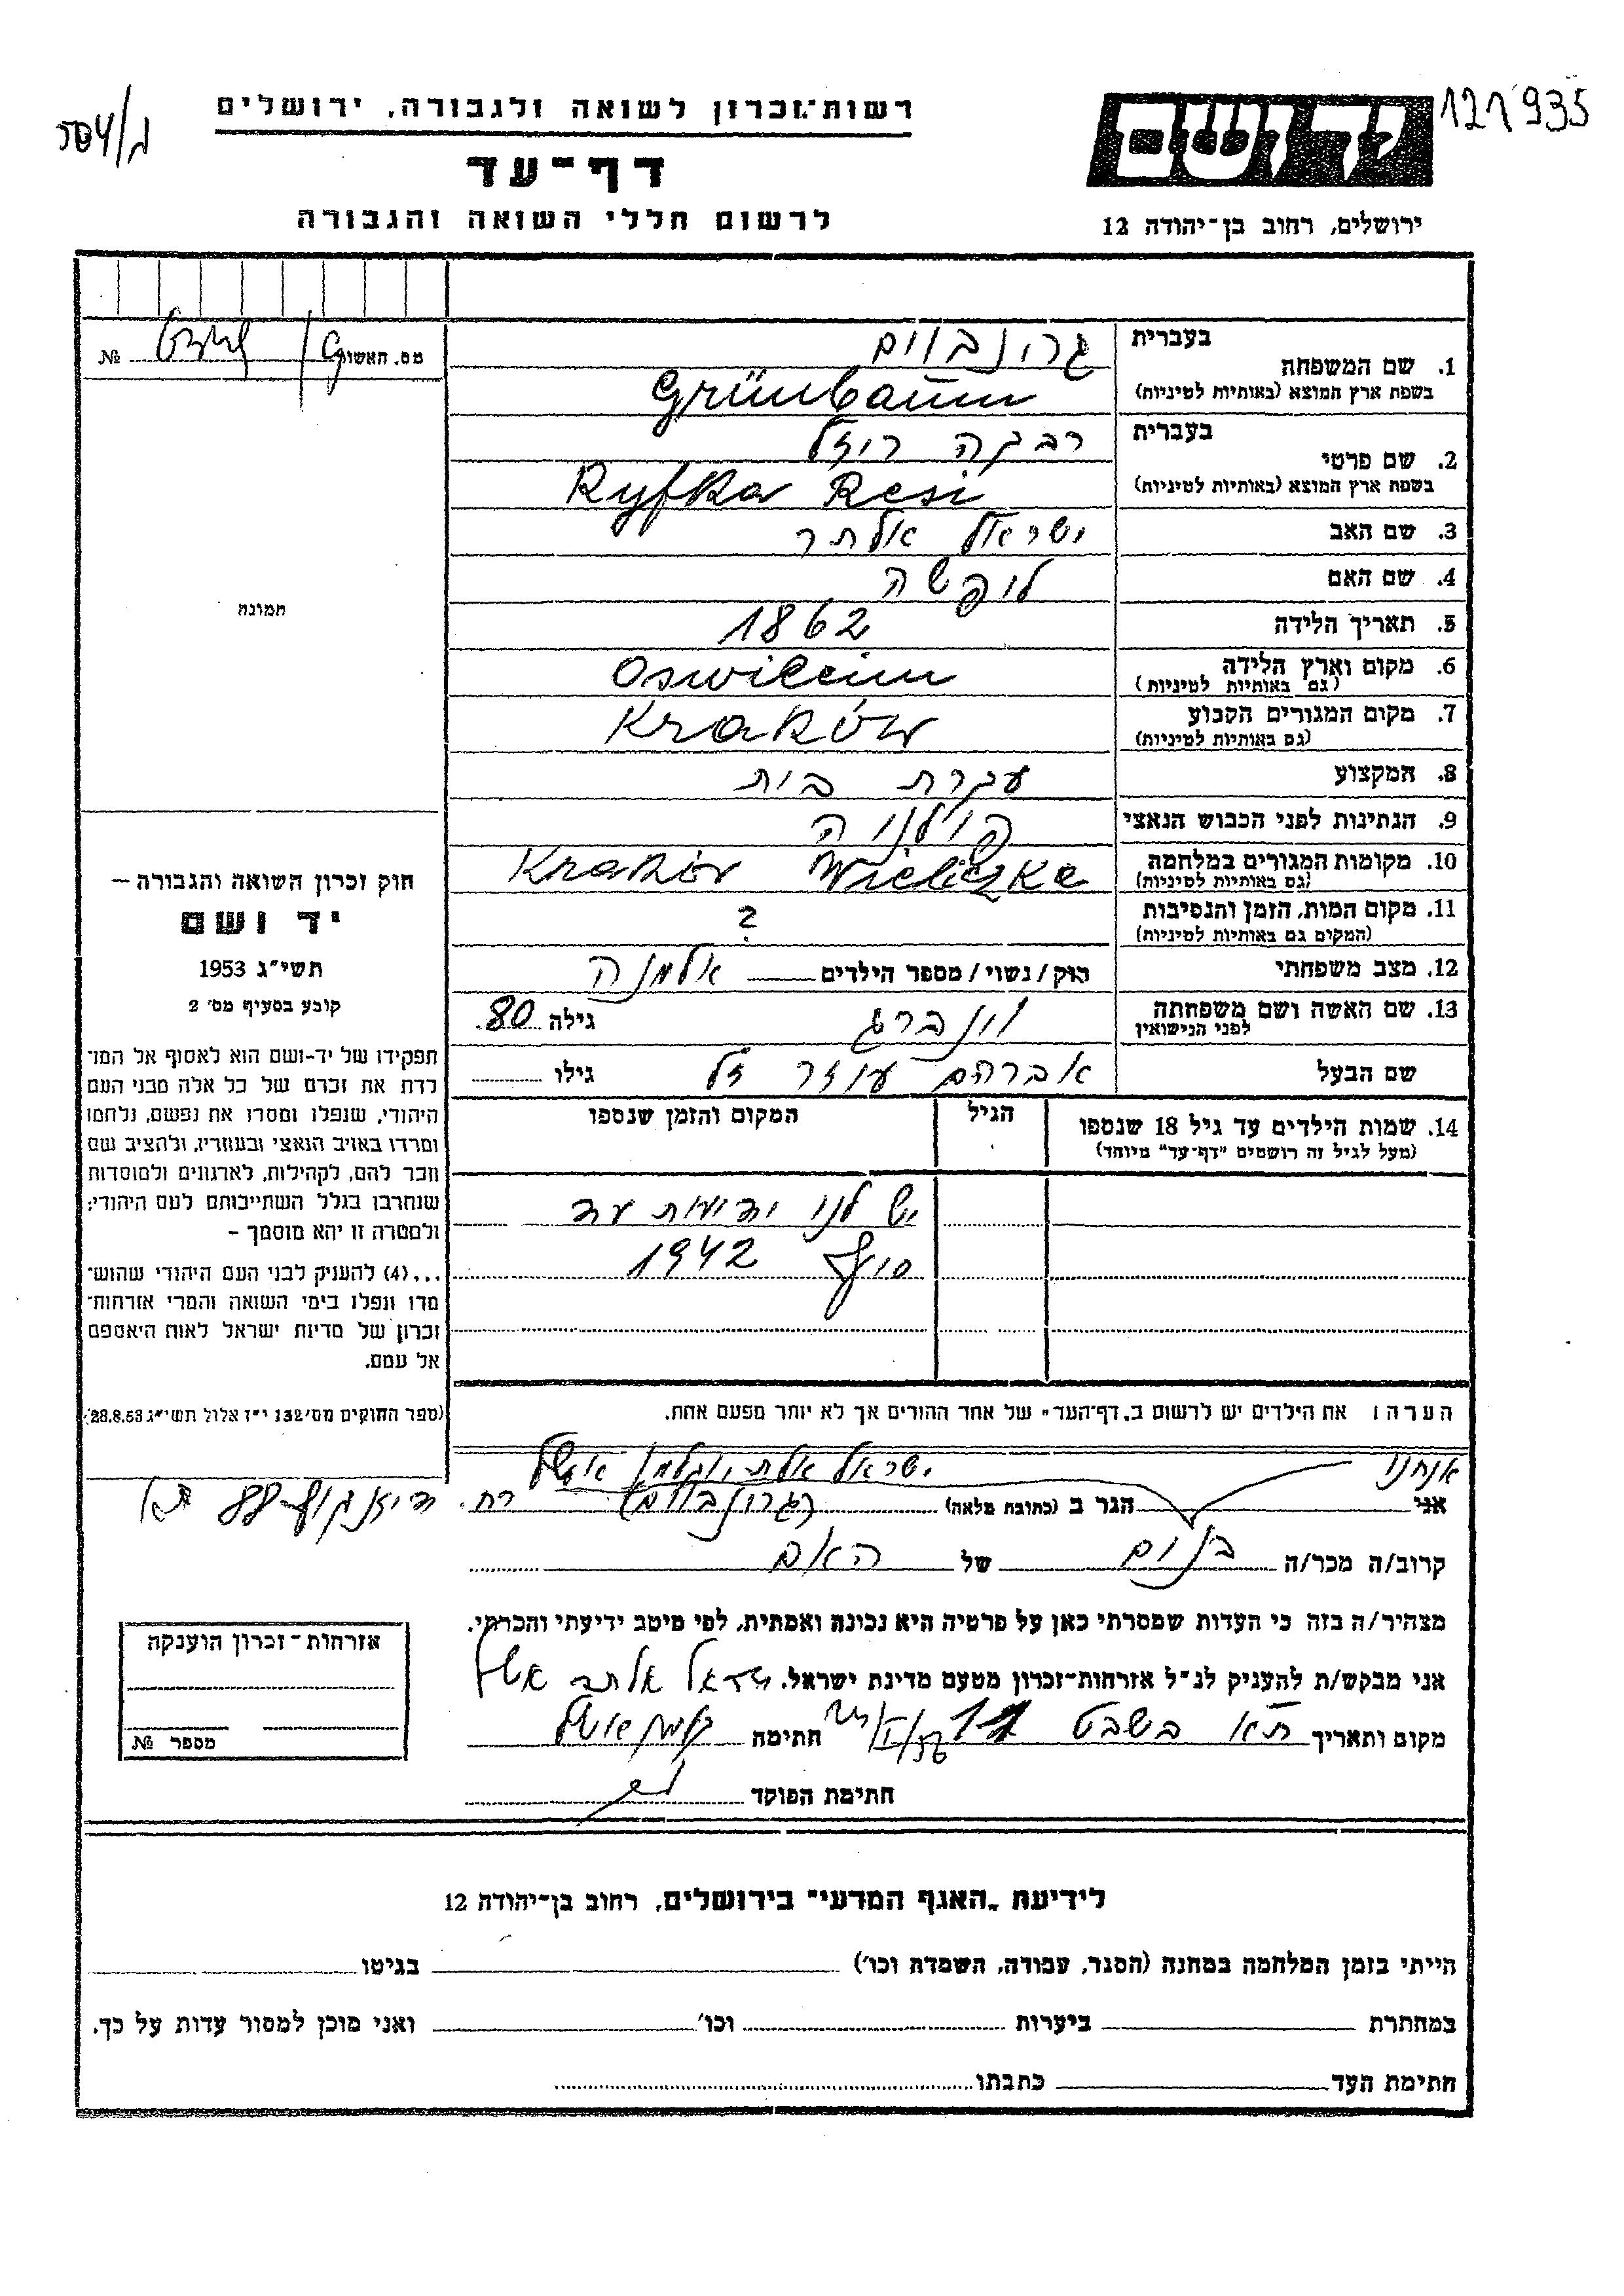 121935
רשות־זכרון לשואה ולגבורה, ירושלים
דף־עד
לרשום חללי השואה והגבורה
יד ושם
ירושלים, רחוב בן־יהודה 12
מס. האשור № 
בעברית
1. שם המשפחה גרונבוים
בשפת ארץ המוצא (באותיות לטיניות) Grünbaum
בעברית
2. שם פרטי רבקה רויזל
בשפת ארץ המוצא (באותיות לטיניות) Ryfka Resi
3. שם האב ישראל אלתר
4. שם האם
5. תאריך הלידה 1862
6. מקום וארץ הלידה Oswileim
(גם באותיות לטיניות)
7. מקום המגורים הקבוע Kraków
(גם באותיות לטיניות)
8. המקצוע עקרת בית
9. הנתינות לפני הכבוש הנאצי פולניה
10. מקומות המגורים במלחמה Kraków Wieliczka
(גם באותיות לטיניות)
11. מקום המות, הזמן והנסיבות ?
(המקום גם באותיות לטיניות)
12. מצב משפחתי רווק/נשוי/מספר הילדים אלמנה
13. שם האשה ושם משפחתה וינברג גילה 80
לפני הנישואין
שם הבעל אברהם עוזר ז"ל גילו
14. שמות הילדים עד גיל 18 שנספו הגיל המקום והזמן שנספו
(מעל לגיל זה רושמים "דף־עד" מיוחד)
יש לנו ידיעות עד
סוף 1942
תמונה
חוק זכרון השואה והגבורה —
יד ושם
תשי"ג 1953
קובע בסעיף מס' 2
תפקידו של יד-ושם הוא לאסוף אל המו־
לדת את זכרם של כל אלה מבני העם
היהודי, שנפלו ומסרו את נפשם, נלחמו
ומרדו באויב הנאצי ובעוזריו, ולהציב שם
וזכר להם, לקהילות, לארגונים ולמוסדות
שנחרבו בגלל השתייכותם לעם היהודי;
ולמטרה זו יהא מוסמך —
...(4) להעניק לבני העם היהודי שהוש־
מדו ונפלו בימי השואה והמרי אזרחות־
זכרון של מדינת ישראל לאות היאספם
אל עמם.
(ספר החוקים מס' 132 י"ז אלול תשי"ג 28.8.53)
הערה: את הילדים יש לרשום ב"דף־העד" של אחד ההורים אך לא יותר מפעם אחת.
אנחנו ישראל אלתר
אני הגר ב (כתובת מלאה) (גרונבוים) רח. דיזנגוף 88 ת"א
קרוב/ה מכר/ה בנים של האם
מצהיר/ה בזה כי העדות שמסרתי כאן על פרטיה היא נכונה ואמתית, לפי מיטב ידיעתי והכרתי.
אני מבקש/ת להעניק לנ"ל אזרחות־זכרון מטעם מדינת ישראל. ישראל אלתר
מקום ותאריך ת"א בשבט חתימה
חתימת הפוקד
אזרחות־זכרון הוענקה
מספר №
לידיעת "האגף המדעי" בירושלים, רחוב בן־יהודה 12
הייתי בזמן המלחמה במחנה (הסגר, עבודה, השמדה וכו') בגיטו
במחתרת ביערות וכו' ואני מוכן למסור עדות על כך.
חתימת העד כתבתו